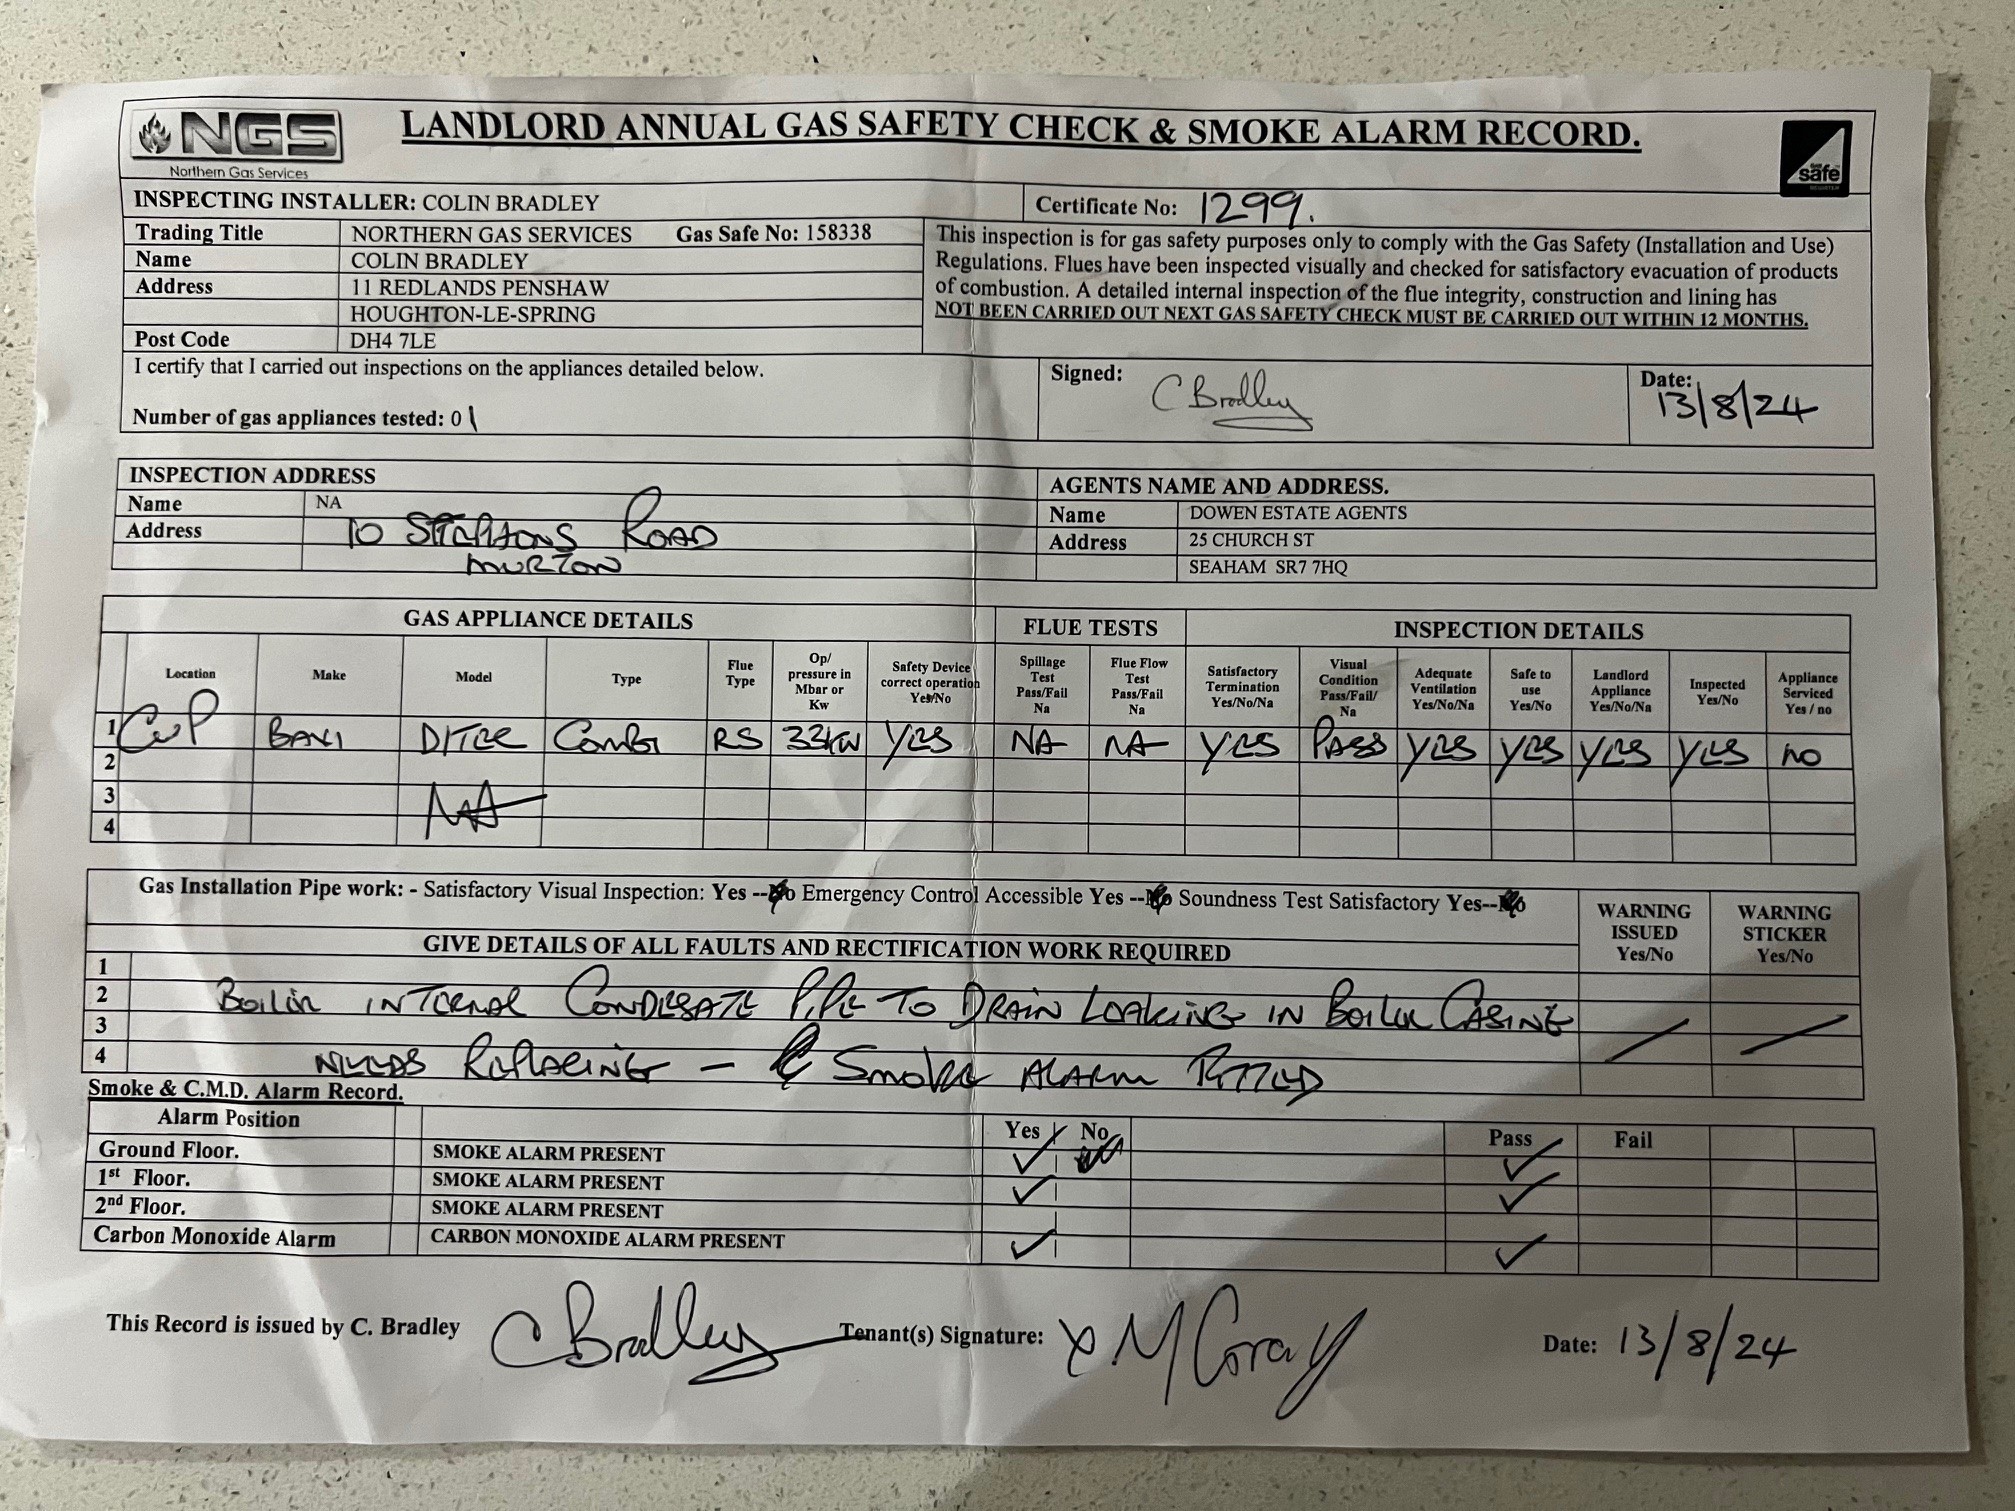 NGS
Northern Gas Services
LANDLORD ANNUAL GAS SAFETY CHECK & SMOKE ALARM RECORD.
GAS safe REGISTER
INSPECTING INSTALLER: COLIN BRADLEY
Certificate No: 1299.
Trading Title NORTHERN GAS SERVICES Gas Safe No: 158338
Name COLIN BRADLEY
Address 11 REDLANDS PENSHAW
HOUGHTON-LE-SPRING
Post Code DH4 7LE
This inspection is for gas safety purposes only to comply with the Gas Safety (Installation and Use)
Regulations. Flues have been inspected visually and checked for satisfactory evacuation of products
of combustion. A detailed internal inspection of the flue integrity, construction and lining has
NOT BEEN CARRIED OUT NEXT GAS SAFETY CHECK MUST BE CARRIED OUT WITHIN 12 MONTHS.
I certify that I carried out inspections on the appliances detailed below.
Number of gas appliances tested: 01
Signed: C Bradley
Date: 13/8/24
INSPECTION ADDRESS
Name NA
Address 10 Road
MURTON
AGENTS NAME AND ADDRESS.
Name DOWEN ESTATE AGENTS
Address 25 CHURCH ST
SEAHAM SR7 7HQ
GAS APPLIANCE DETAILS FLUE TESTS INSPECTION DETAILS
Location Make Model Type Flue Type Op/ pressure in Mbar or Kw Safety Device correct operation Yes/No Spillage Test Pass/Fail Na Flue Flow Test Pass/Fail Na Satisfactory Termination Yes/No/Na Visual Condition Pass/Fail/ Na Adequate Ventilation Yes/No/Na Safe to use Yes/No Landlord Appliance Yes/No/Na Inspected Yes/No Appliance Serviced Yes / no
1 CuP BAXI Combi RS 33KW YES NA NA YES PASS YES YES YES YES NO
2
3 NA
4
Gas Installation Pipe work: - Satisfactory Visual Inspection: Yes --No Emergency Control Accessible Yes --No Soundness Test Satisfactory Yes--No
WARNING ISSUED Yes/No
WARNING STICKER Yes/No
GIVE DETAILS OF ALL FAULTS AND RECTIFICATION WORK REQUIRED
1
2 Boiler INTERNAL CONDESATE PIPE TO DRAIN LEAKING IN BOILER CASING
3
4 NEEDS REPLACING - SMOKE ALARM FITTED
Smoke & C.M.D. Alarm Record.
Alarm Position Yes / No Pass Fail
Ground Floor. SMOKE ALARM PRESENT ✓ ✓
1st Floor. SMOKE ALARM PRESENT ✓ ✓
2nd Floor. SMOKE ALARM PRESENT
Carbon Monoxide Alarm CARBON MONOXIDE ALARM PRESENT ✓ ✓
This Record is issued by C. Bradley C Bradley
Tenant(s) Signature: x M
Date: 13/8/24